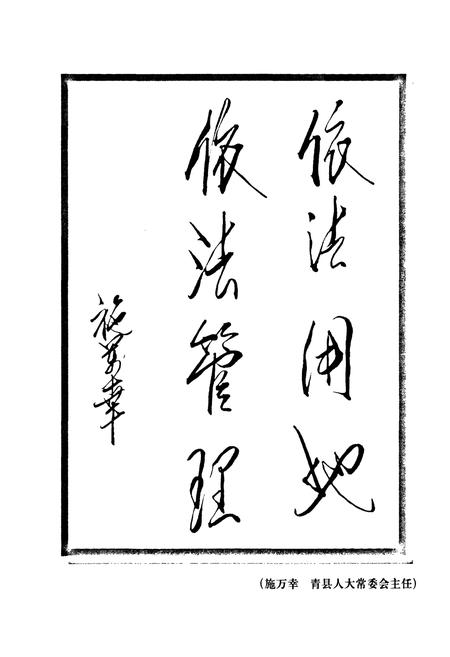 依法用地
依法管理
施万幸
(施万幸 青县人大常委会主任)